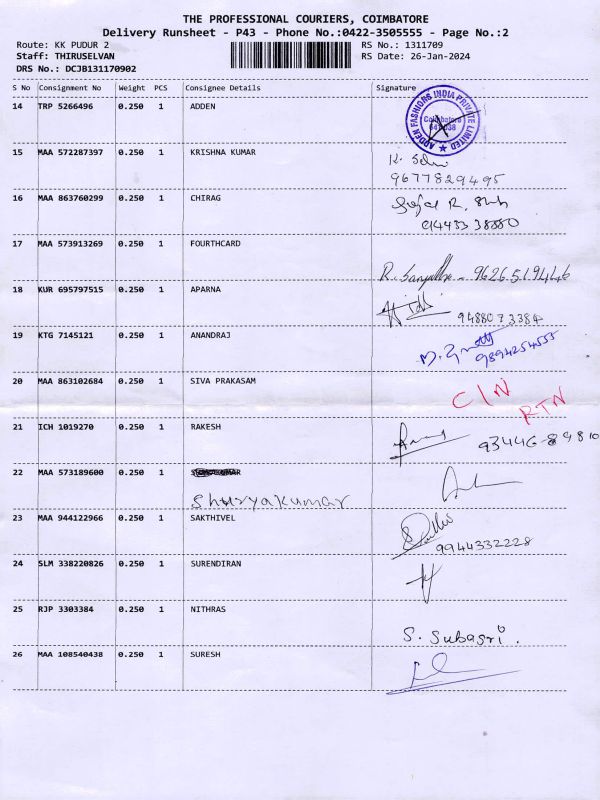 THE PROFESSIONAL COURIERS, COIMBATORE
Delivery Runsheet - P43 - Phone No.:0422-3505555 - Page No.:2
Route: KK PUDUR 2 RS No.: 1311709
Staff: THIRUSELVAN RS Date: 26-Jan-2024
DRS No.: DCJB131170902
S No Consignment No Weight PCS Consignee Details Signature
14 TRP 5266496 0.250 1 ADDEN
ADDEN FASHIONS INDIA PRIVATE LIMITED
Coimbatore
15 MAA 572287397 0.250 1 KRISHNA KUMAR
9677829495
16 MAA 863760299 0.250 1 CHIRAG
17 MAA 573913269 0.250 1 FOURTHCARD
9626519446
18 KUR 695797515 0.250 1 APARNA
9488073384
19 KTG 7145121 0.250 1 ANANDRAJ
9894254555
20 MAA 863102684 0.250 1 SIVA PRAKASAM
C/N RTN
21 ICH 1019270 0.250 1 RAKESH
93446-89810
22 MAA 573189600 0.250 1
Shuryakumar
23 MAA 944122966 0.250 1 SAKTHIVEL
9944332228
24 SLM 338220826 0.250 1 SURENDIRAN
25 RJP 3303384 0.250 1 NITHRAS
S. Subasri.
26 MAA 108540438 0.250 1 SURESH